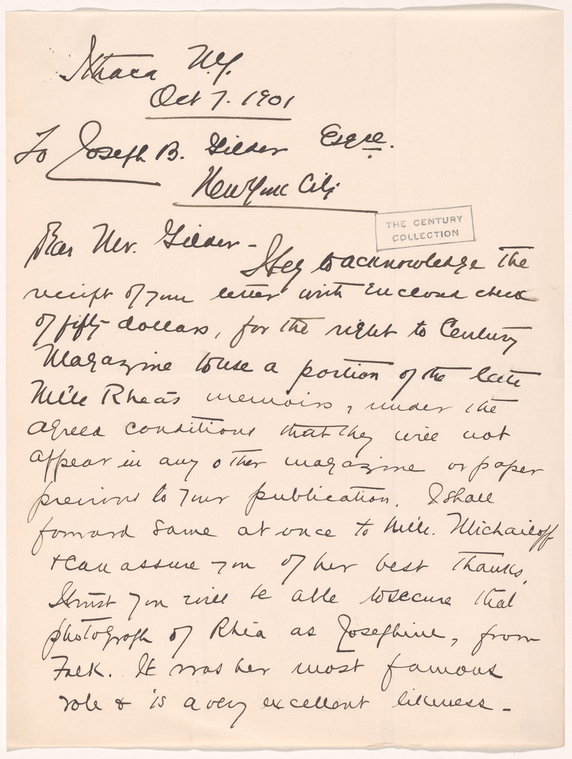 Ithaca N.Y.
Oct 7. 1901
To Joseph B. Gilder Esqre.
New York City
THE CENTURY
COLLECTION
Dear Mr. Gilder -
I beg to acknowledge the
receipt of your letter with enclosed check
of fifty dollars, for the right to Century
Magazine to use a portion of the late
Mlle Rhea's memoirs, under the
agreed conditions that they will not
appear in any other magazine or paper
previous to your publication. I shall
forward same at once to Mlle. Michailoff
& can assure you of her best thanks.
I trust you will be able to secure that
photograph of Rhea as Josephine, from
Falk. It was her most famous
role & is a very excellent likeness -